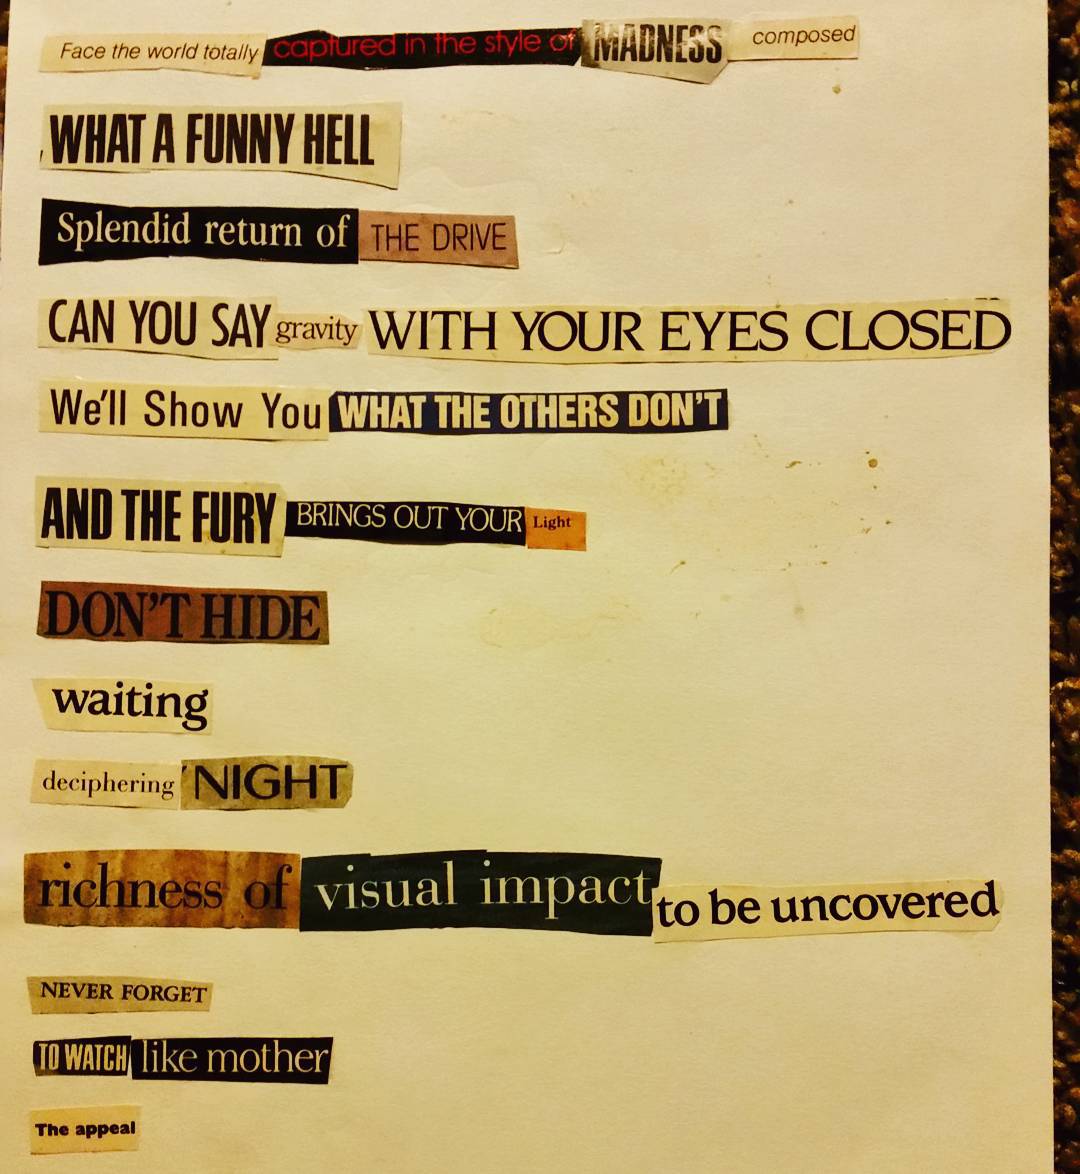 Face the world totally captured in the style of MADNESS composed
WHAT A FUNNY HELL
Splendid return of THE DRIVE
CAN YOU SAY gravity WITH YOUR EYES CLOSED
We'll Show You WHAT THE OTHERS DON'T
AND THE FURY BRINGS OUT YOUR Light
DON'T HIDE
waiting
deciphering NIGHT
richness of visual impact to be uncovered
NEVER FORGET
TO WATCH like mother
The appeal